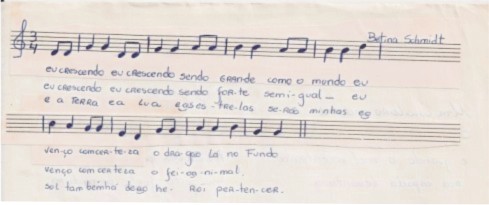 Betina Schmidt
3
4
eu crescendo eu crescendo sendo GRANDE como o mundo eu
eu crescendo eu crescendo sendo for-te sem i-gual_ eu
e a TERRA e a Lua e as es-tre-las se-rão minhas es
venço com cer-te-za o dra-gão lá no Fundo
venço com certeza o fei-o a-ni-mal.
sol também há de go he-Roi per-ten-cer.